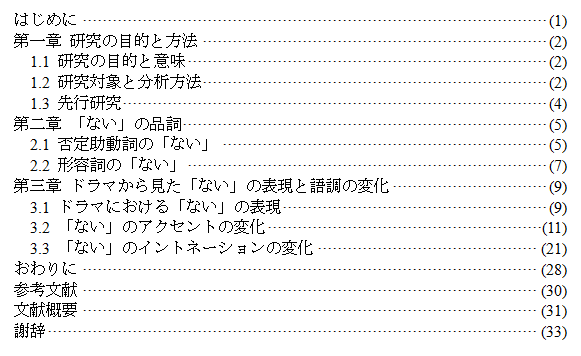 はじめに ………………………………………………………………………… (1)
第一章 研究の目的と方法 ……………………………………………………… (2)
1.1 研究の目的と意味 ………………………………………………………… (2)
1.2 研究対象と分析方法 ……………………………………………………… (2)
1.3 先行研究 …………………………………………………………………… (4)
第二章 「ない」の品詞 ………………………………………………………… (5)
2.1 否定助動詞の「ない」 …………………………………………………… (5)
2.2 形容詞の「ない」 ………………………………………………………… (7)
第三章 ドラマから見た「ない」の表現と語調の変化 ……………………… (9)
3.1 ドラマにおける「ない」の表現 ………………………………………… (9)
3.2 「ない」のアクセントの変化 …………………………………………… (11)
3.3 「ない」のイントネーションの変化 …………………………………… (21)
おわりに ………………………………………………………………………… (28)
参考文献 ………………………………………………………………………… (30)
文献概要 ………………………………………………………………………… (31)
謝辞 ……………………………………………………………………………… (33)